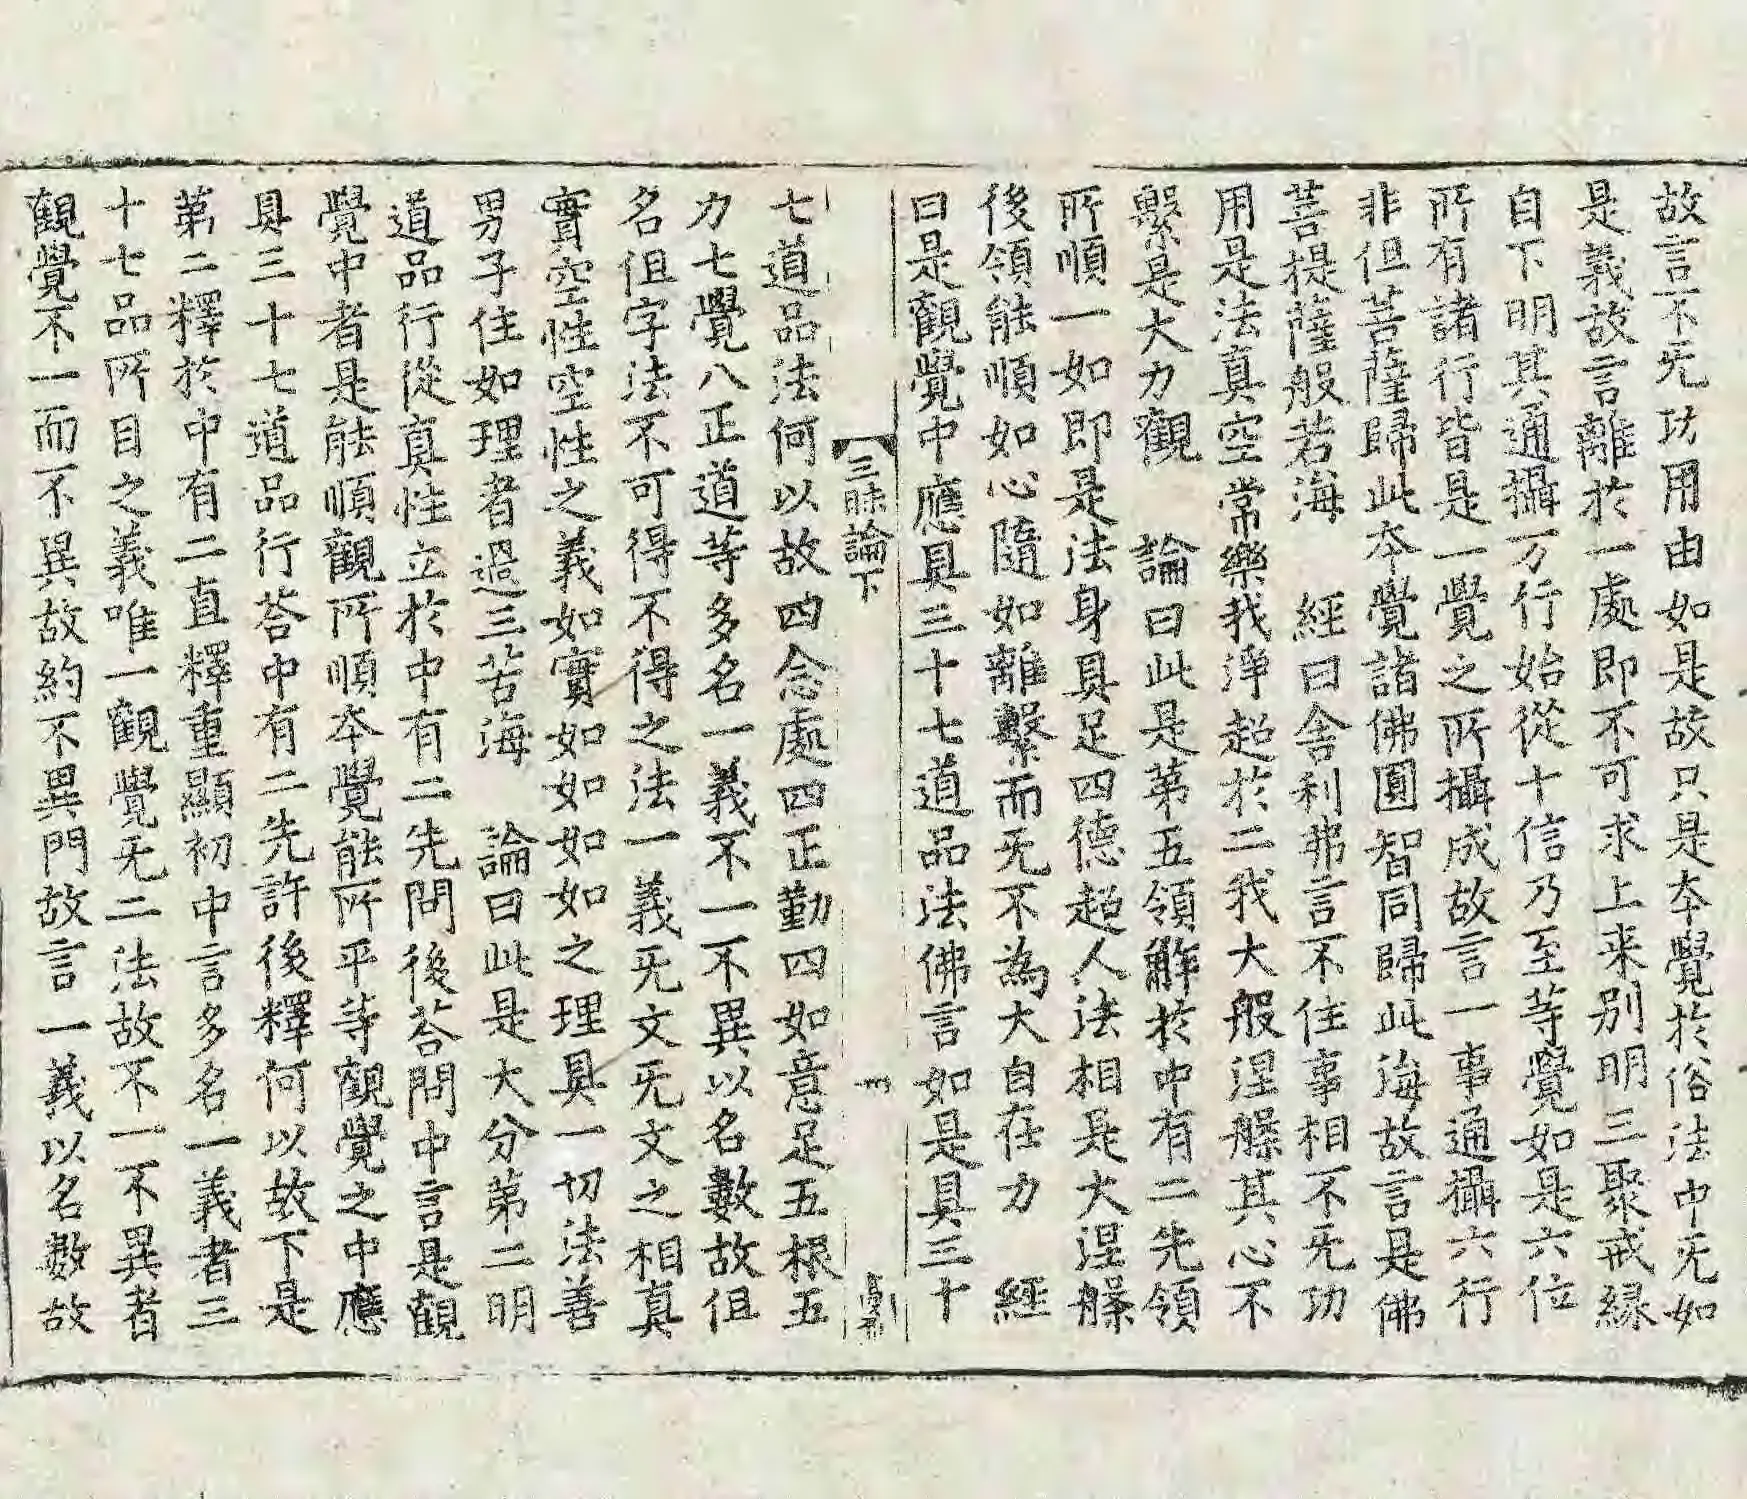 故言不旡功用由如是故只是夲覺於俗法中旡如
是義故言離於一處即不可求上来别明三聚戒縁
自下明其通攝万行始從十信乃至等覺如是六位
所有諸行皆是一覺之所攝成故言一事通攝六行
非但菩薩歸此夲覺諸佛圓智同歸此海故言是佛
菩提薩般若海　經曰舍利弗言不住事相不旡功
用是法真空常樂我淨超於二我大般涅槃其心不
繫是大力觀　論曰此是第五領解於中有二先領
所順一如即是法身具足四德超人法相是大涅槃
後領能順如心隨如離繫而旡不為大自在力　經
曰是觀覺中應具三十七道品法佛言如是具三十
三昧論下
七道品法何以故四念處四正勤四如意足五根五
力七覺八正道等多名一義不一不異以名數故伹
名伹字法不可得不得之法一義旡文旡文之相真
實空性空性之義如實如如如如之理具一切法善
男子住如理者過三苦海　論曰此是大分第二明
道品行從真性立於中有二先問後荅問中言是觀
覺中者是能順觀所順夲覺能所平等觀覺之中應
具三十七道品行荅中有二先許後釋何以故下是
第二釋於中有二直釋重顯初中言多名一義者三
十七品所目之義唯一觀覺旡二法故不一不異者
觀覺不一而不異故約不異門故言一義以名數故